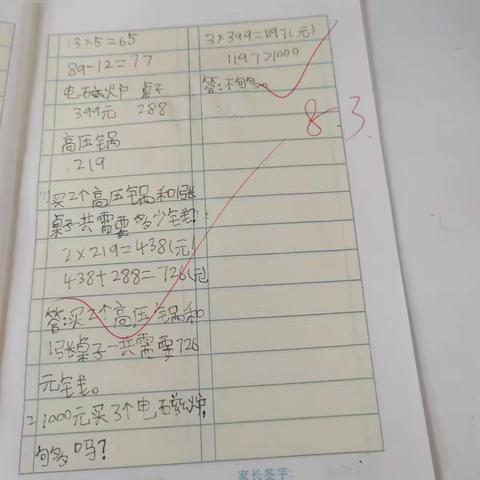 13×5=65
89-12=77
电磁炉 桌子
399元 288
高压锅
219
(1)买2个高压锅和1张
桌子共需要多少钱?
2×219=438(元)
438+288=726(元)
答:买2个高压锅和
1张桌子一共需要726
元钱。
2.1000元买3个电磁炉,
句多吗?
3×399=1197(元)
1197>1000
答:不句多。
8.3
家长签字: